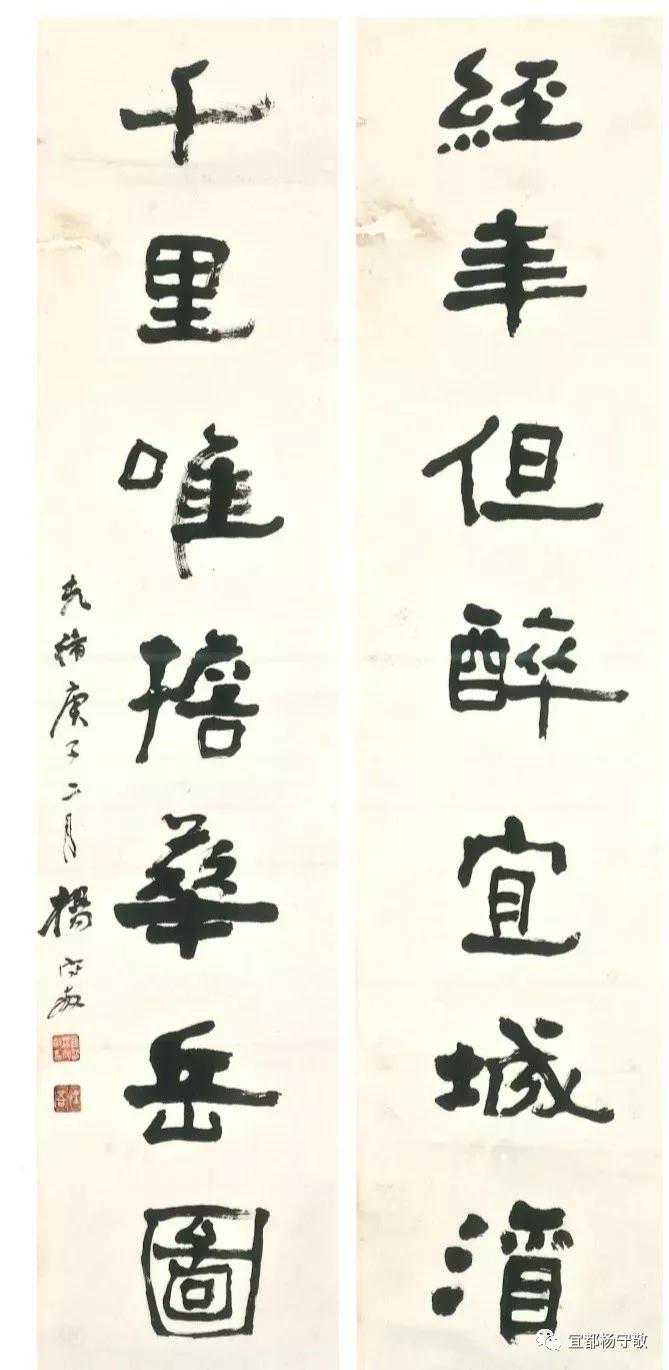 經年但醉宜城酒
千里唯擔華岳圖
光緒庚子二月楊守敬
宜都杨守敬